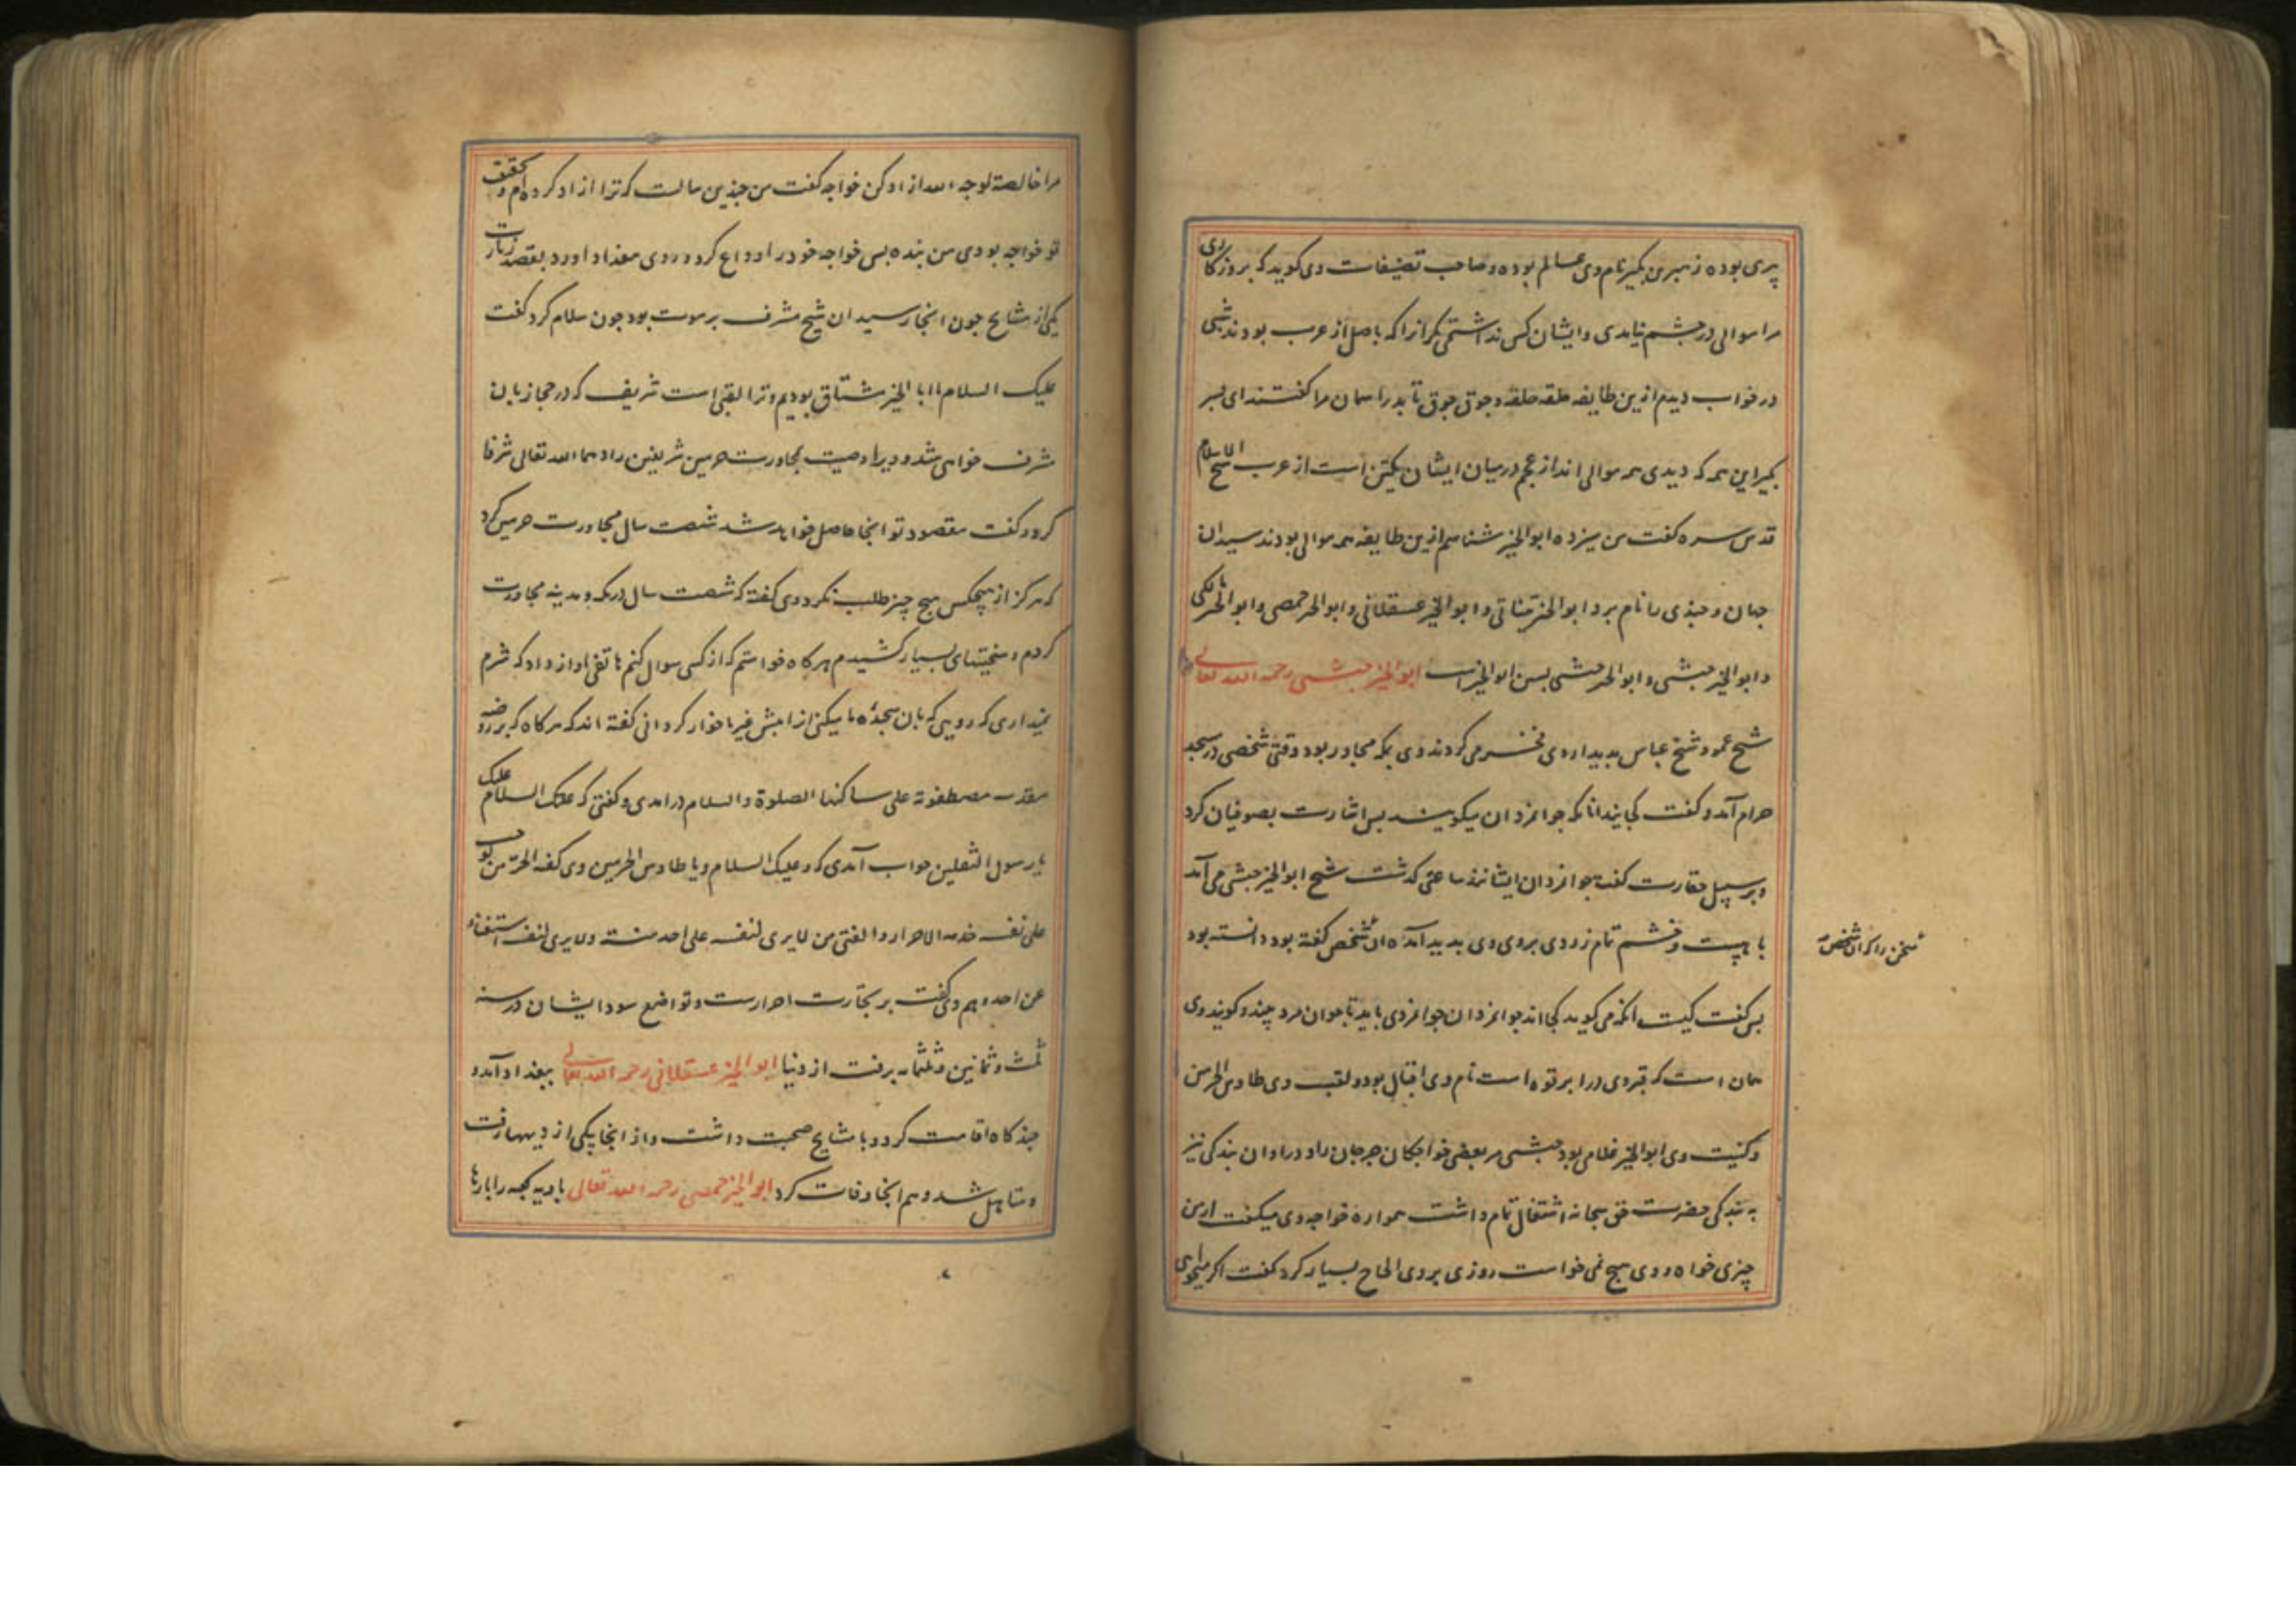 پیری بوده زهیر بن بکیر نام وی عالم بوده و صاحب تصنیفات وی کوید که بروزکاری
مرا موالی در چشم نیامدی و ایشان کس نداشتمی مکر انرا که باصل از عرب بودند شبی
در خواب دیدم ازین طایفه حلقه حلقه و جوق جوق تا بدر اسمان مرا کفتند ای پسر
بکیر این همه که دیدی همه موالی اند از عجم در میان ایشان یکتن است از عرب شیخ الاسلام
قدس سره کفت من سیزده ابو الخیر شناسم ازین طایفه همه موالی بودند سیدان
جهان و چندی را نام برد ابو الخیر تیناتی و ابو الخیر عسقلانی و ابو الخیر حمصی و ابو الخیر مالکی
و ابو الخیر حبشی و ابو الخیر حبشی پسین ابو الخیراست ابو الخیر حبشی رحمه الله تعالی
شیخ عمو و شیخ عباس بدیدار وی فخر می کردند وی بمکه مجاور بود وقتی شخصی در مسجد
حرام آمد و کفت کجایند انانکه جوانمردان میکویند پس اشارت بصوفیان کرد
و بر سبیل حقارت کفت جوانمردان ایشانند ساعتی کذشت شیخ ابو الخیر حبشی می آمد
با هیبت و خشم تمام زردی بروی وی پدید آمده ان شخص کفته بود دانسته بود
سخن را که ان شخص
پس کفت کیست انکه می کوید کجا اند جوانمردان جوانمردی باید تا جوان مرد بیند و کویند وی
همان است که قبر وی در ابرقوه است نام وی اقبال بود و لقب وی طاوس الحرمین
و کنیت وی ابو الخیر غلامی بود حبشی مر بعضی خواجکان جرجان را و در اوان بندکی نیز
به بندکی حضرت حق سبحانه اشتغال تمام داشت همواره خواجه وی میکفت از من
چیزی خواه و وی هیچ نمی خواست روزی بر وی الحاح بسیار کرد کفت اکر میخواهی
مرا خالصة لوجه الله ازاد کن خواجه کفت من چندین سالست که ترا ازاد کرده ام و بحقیقت
تو خواجه بودی من بنده پس خواجه خود را وداع کرد و روی ببغداد اورد بقصد زیارت
یکی از مشایخ چون انجا رسید ان شیخ مشرف بر موت بود چون سلام کرد کفت
علیک السلام یا ابا الخیر مشتاق بودیم و ترا لقبی است شریف که در حجاز بان
مشرف خواهی شد و ویرا وصیت بمجاورت حرمین شریفین زادهما الله تعالی شرفا
کرد و کفت مقصود تو انجا حاصل خواهد شد شصت سال مجاورت حرمین کرد
که هرکز از هیچکس هیچ چیز طلب نکرد وی کفته که شصت سال در مکه و مدینه مجاورت
کردم و سختیهای بسیار کشیدم هر کاه خواستم که از کسی سوال کنم هاتفی اواز داد که شرم
نمیداری که رویی که بان سجده ما میکنی انرا پیش غیر ما خوار کردانی کفته اند که هر کاه که بر روضه
مقدسه مصطفویه علی ساکنها الصلوة و السلام در امدی و کفتی که علیک السلام علیک
یا رسول الثقلین جواب آمدی که و علیک السلام و یا طاوس الحرمین وی کفته الحر من یوجب
علی نفسه خدمة الاحرار و الفتی من لا یری لنفسه علی احد منة و لا یری لنفسه استغناء
عن احد و هم وی کفت بر تجارت احرارست و تواضع سود ایشان در سنه
ثلث و ثمانین و ثلثمایه برفت از دنیا ابو الخیر عسقلانی رحمه الله تعالی ببغداد آمد و
چند کاه اقامت کرد و با مشایخ صحبت داشت و از انجا بیکی از دیهها رفت
و متاهل شد و هم انجا وفات کرد ابو الخیر حمصی رحمه الله تعالی بادیه کعبه را بارها